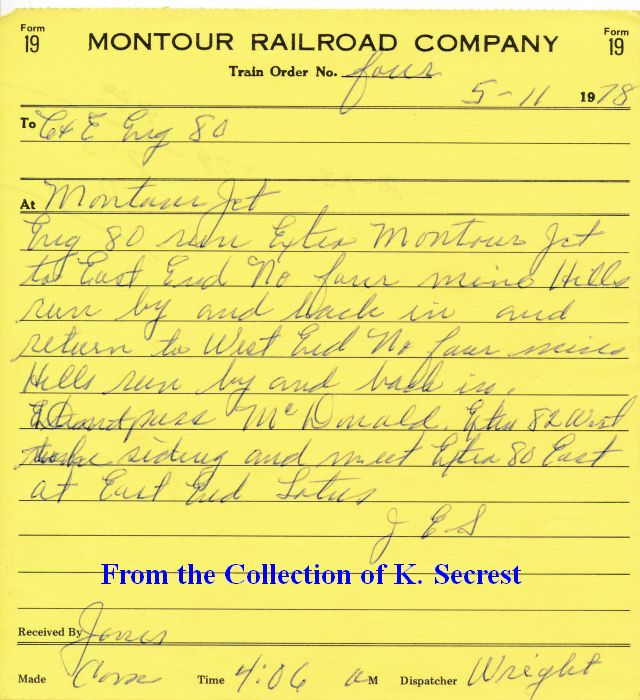 Form 19
MONTOUR RAILROAD COMPANY
Form 19
Train Order No. four
5-11 1978
To C&E Eng 80
At Montour Jct
Eng 80 run Extra Montour Jct
to East End No four mine Hills
run by and back in and
return to West End No four mine
Hills run by and back in.
pass McDonald. Extra 82 West
take siding and meet Extra 80 East
at East End Lotus
J E S
From the Collection of K. Secrest
Received By Jones
Made Com Time 4:06 a M Dispatcher Wright